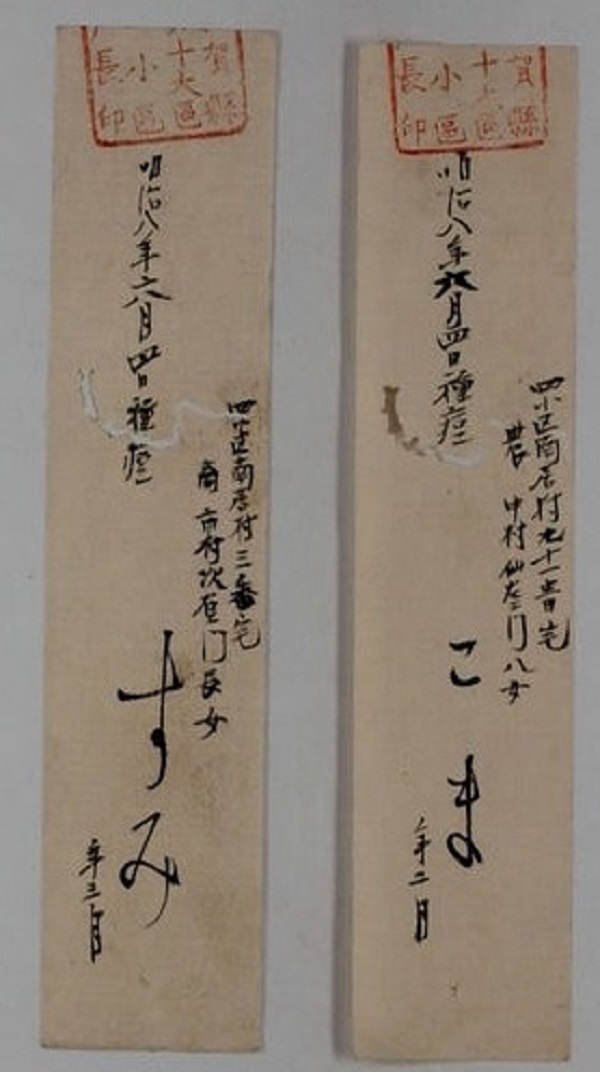 賀縣
十大區
小區
長印
四小区南居村九十一番宅
農 中村仙左エ門八女
明治八年六月四日種痘
こま
年二月
賀縣
十大區
小區
長印
四小区南居村三番宅
商 市村次右門長女
明治八年六月四日種痘
すみ
年三月